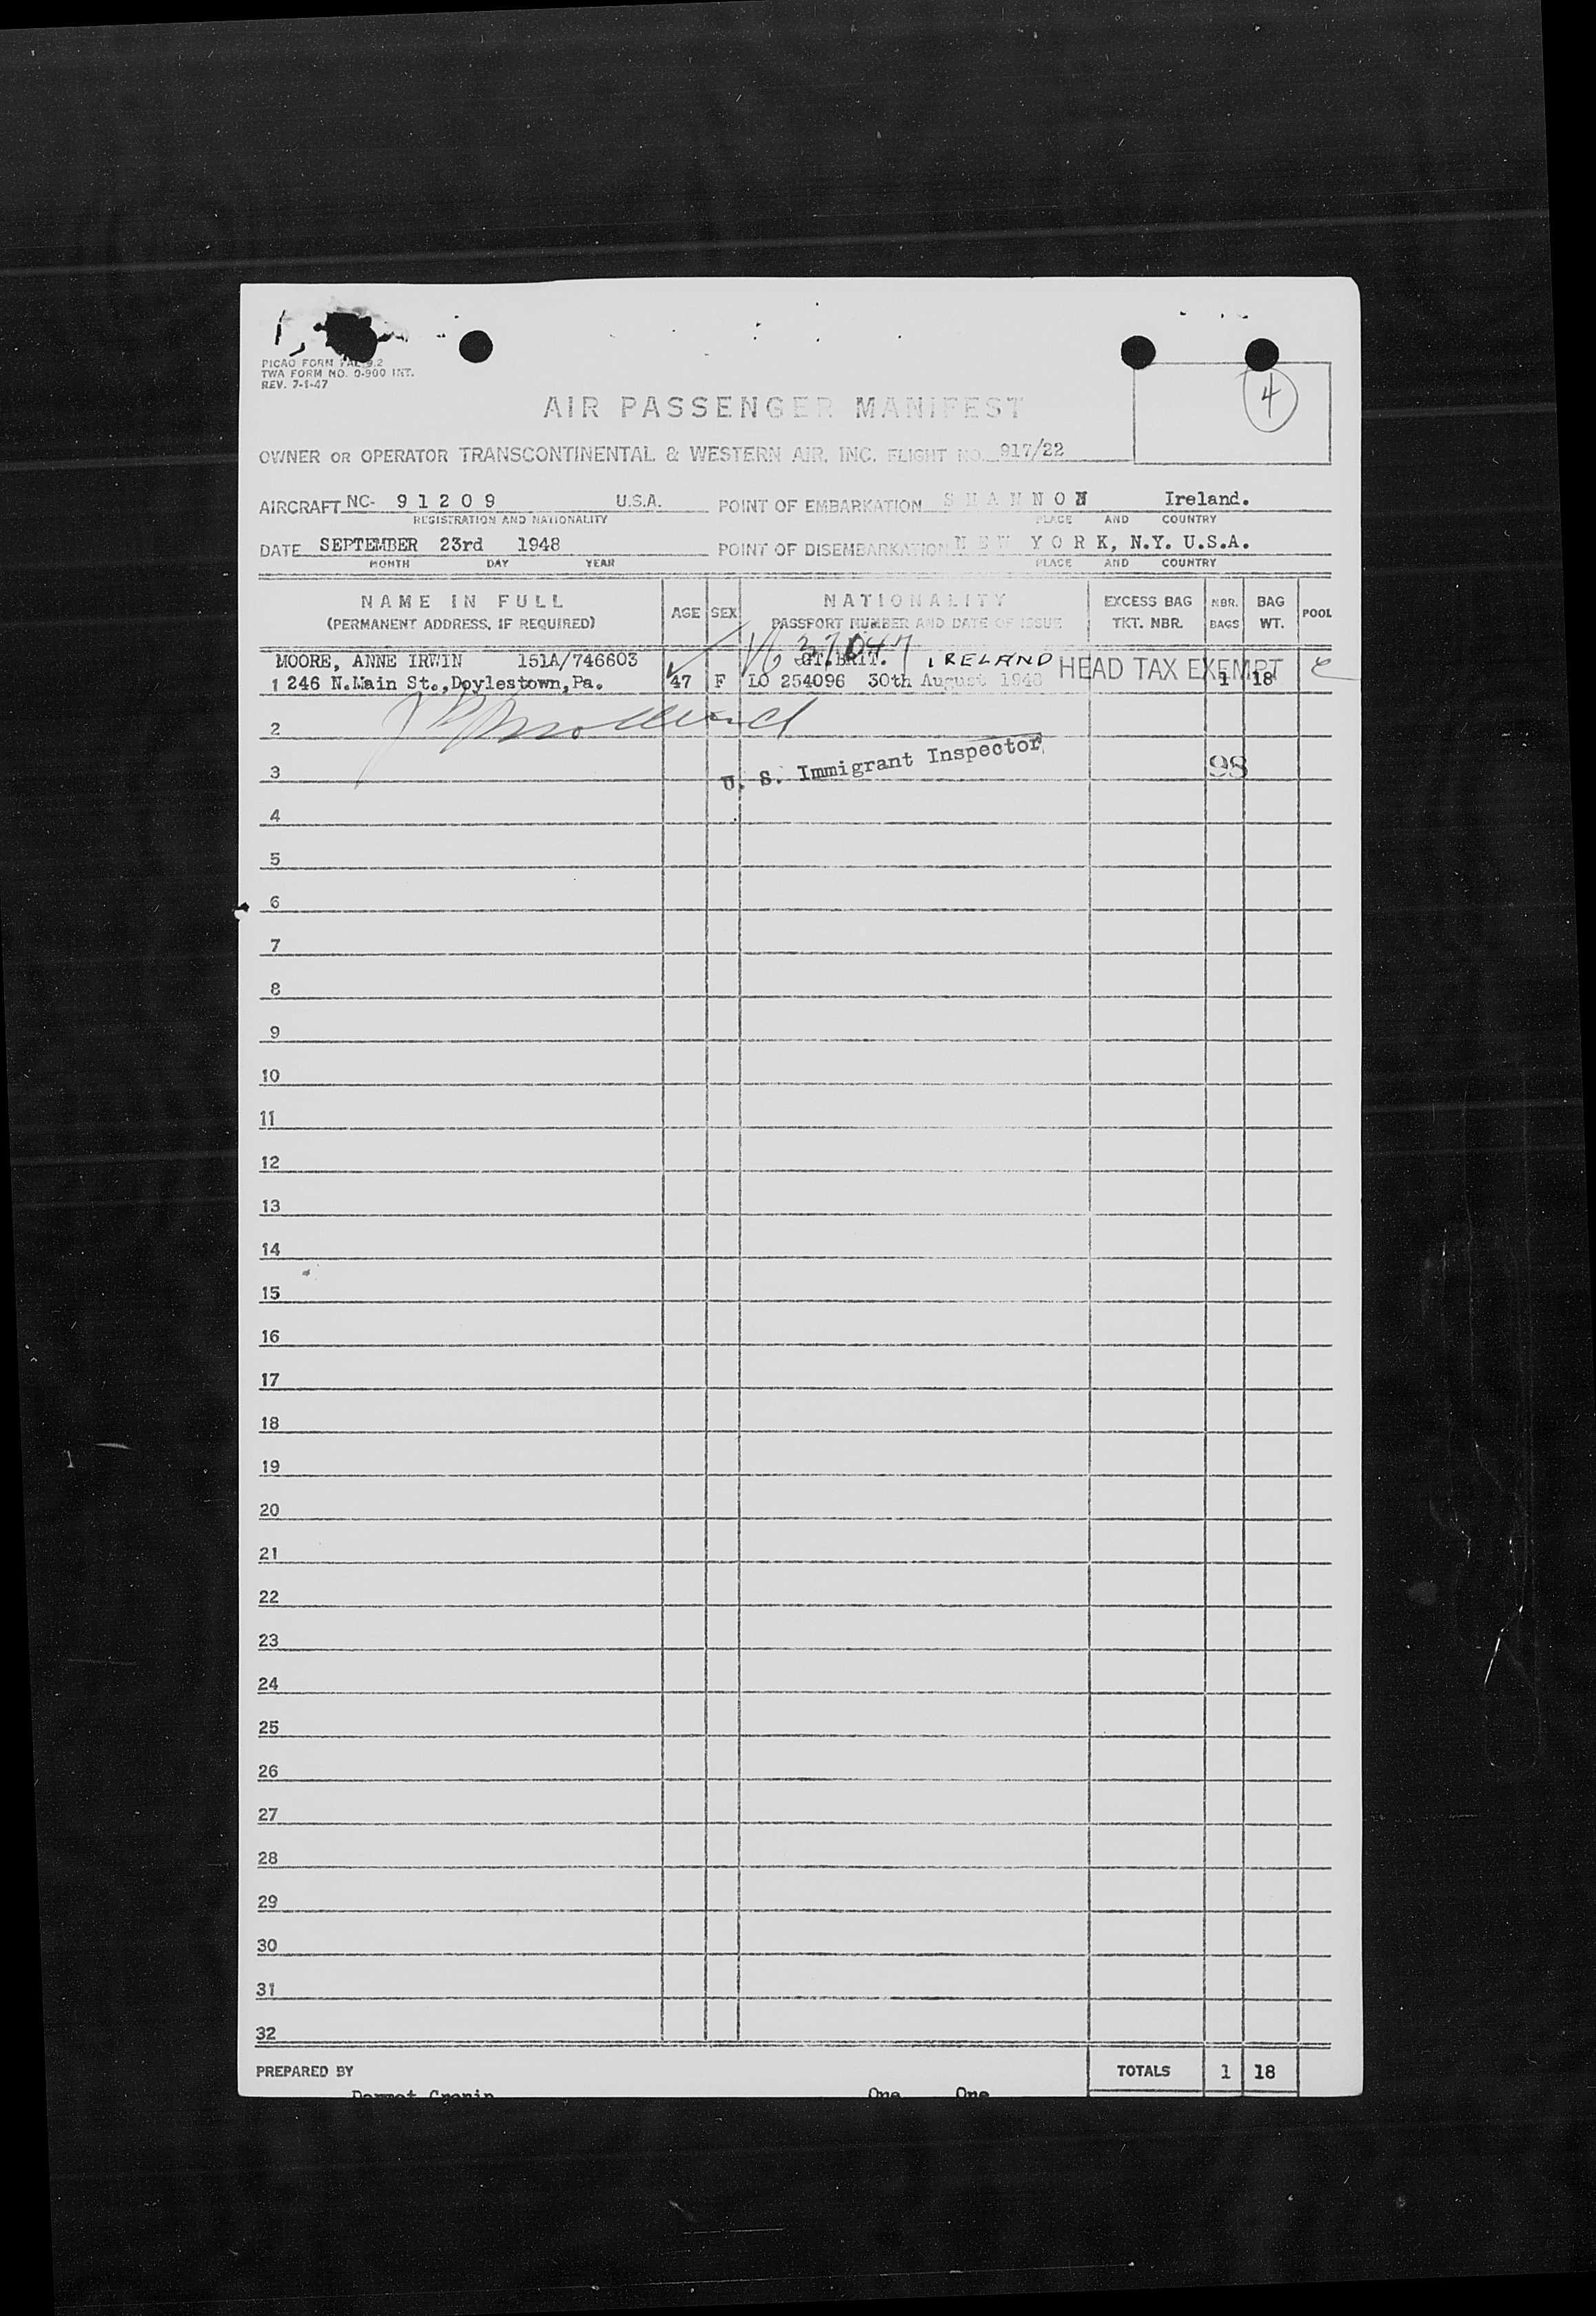 PICAO FORM FAL 9.2
TWA FORM NO. O-900 INT.
REV. 7-1-47
4
AIR PASSENGER MANIFEST
OWNER OR OPERATOR TRANSCONTINENTAL & WESTERN AIR, INC. FLIGHT NO. 917/22
AIRCRAFT NC- 9 1 2 0 9 U.S.A. POINT OF EMBARKATION S H A N N O N Ireland.
REGISTRATION AND NATIONALITY PLACE AND COUNTRY
DATE SEPTEMBER 23rd 1948 POINT OF DISEMBARKATION N E W Y O R K, N.Y. U.S.A.
MONTH DAY YEAR PLACE AND COUNTRY
NAME IN FULL AGE SEX NATIONALITY EXCESS BAG NBR. BAG POOL
(PERMANENT ADDRESS, IF REQUIRED) PASSPORT NUMBER AND DATE OF ISSUE TKT. NBR. BAGS WT.
37047
MOORE, ANNE IRWIN 151A/746603 GT.BRIT. IRELAND HEAD TAX EXEMPT
1 246 N.Main St.,Doylestown,Pa. 47 F LO 254096 30th August 1948 1 18
2
U. S. Immigrant Inspector
3 98
4
5
6
7
8
9
10
11
12
13
14
15
16
17
18
19
20
21
22
23
24
25
26
27
28
29
30
31
32
PREPARED BY TOTALS 1 18
Dermot Cronin One One